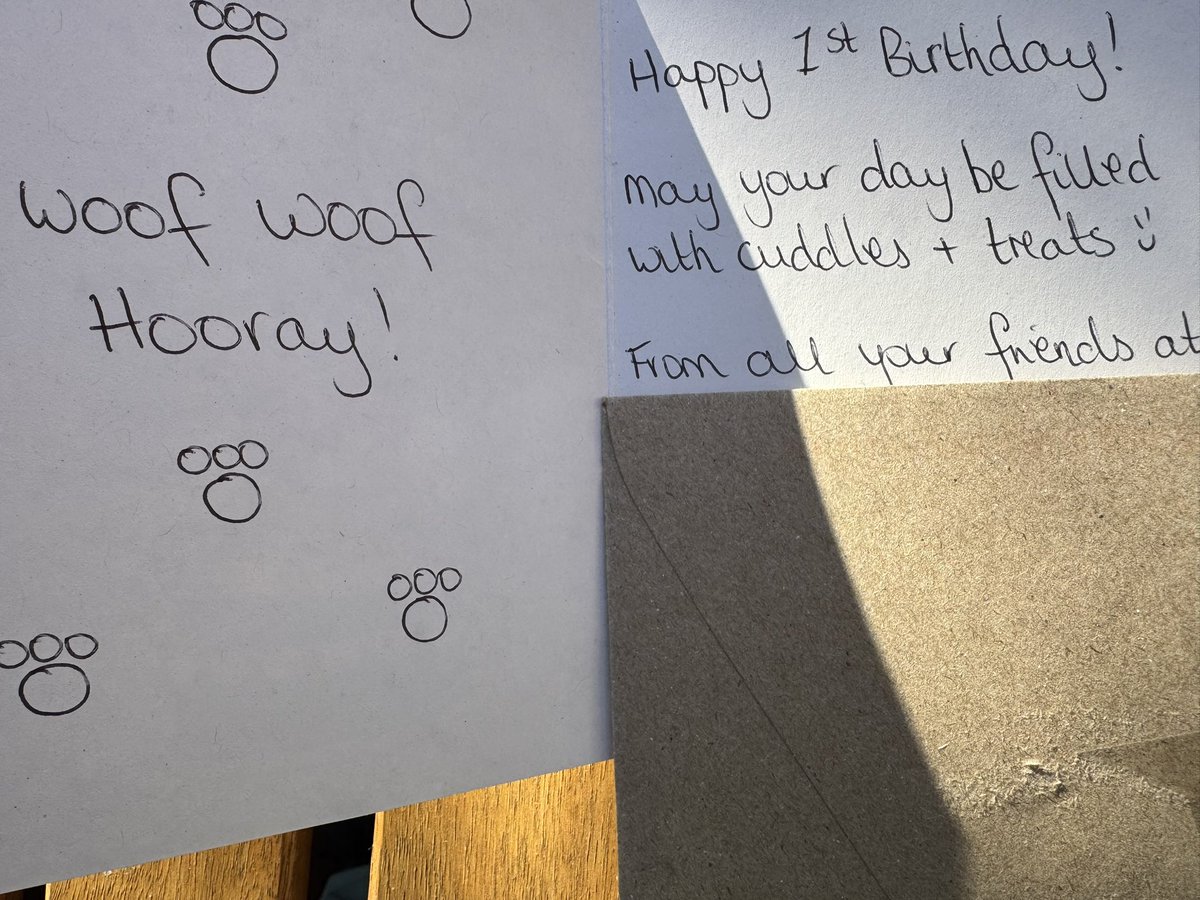 Woof Woof
Hooray!
Happy 1st Birthday!
May your day be filled
with cuddles + treats
From all your friends at